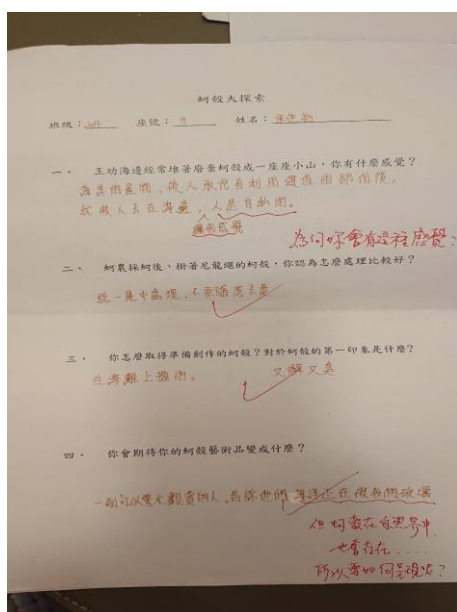 蚵殼大探索
班級： 座號：9 姓名：
一、 王功海邊經常堆著廢棄蚵殼成一座座小山，你有什麼感覺？
海洋的產物，被人取完有利用還值的部份後，
就被人丟在海邊，人是自私的。
為何你會有這種感覺？
二、 蚵農採蚵後，掛著尼龍繩的蚵殼，你認為怎麼處理比較好？
統一集中處理，不要隨意丟棄
三、 你怎麼取得準備創作的蚵殼？對於蚵殼的第一印象是什麼？
在海灘上撿的， 又髒又臭
四、 你會期待你的蚵殼藝術品變成什麼？
一副可以警示觀賞的人，告訴他們 海洋正在被我們破壞
但蚵殼在自然界中
也會存在....
所以要如何呈現呢？